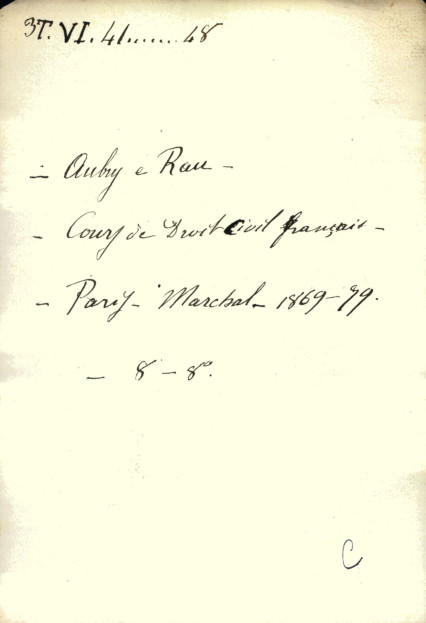 3T. VI. 41......48
- Aubry e Rau -
- Cours de Droit Civil français -
- Paris - Marchal - 1869-79.
- 8 - 8º.
C